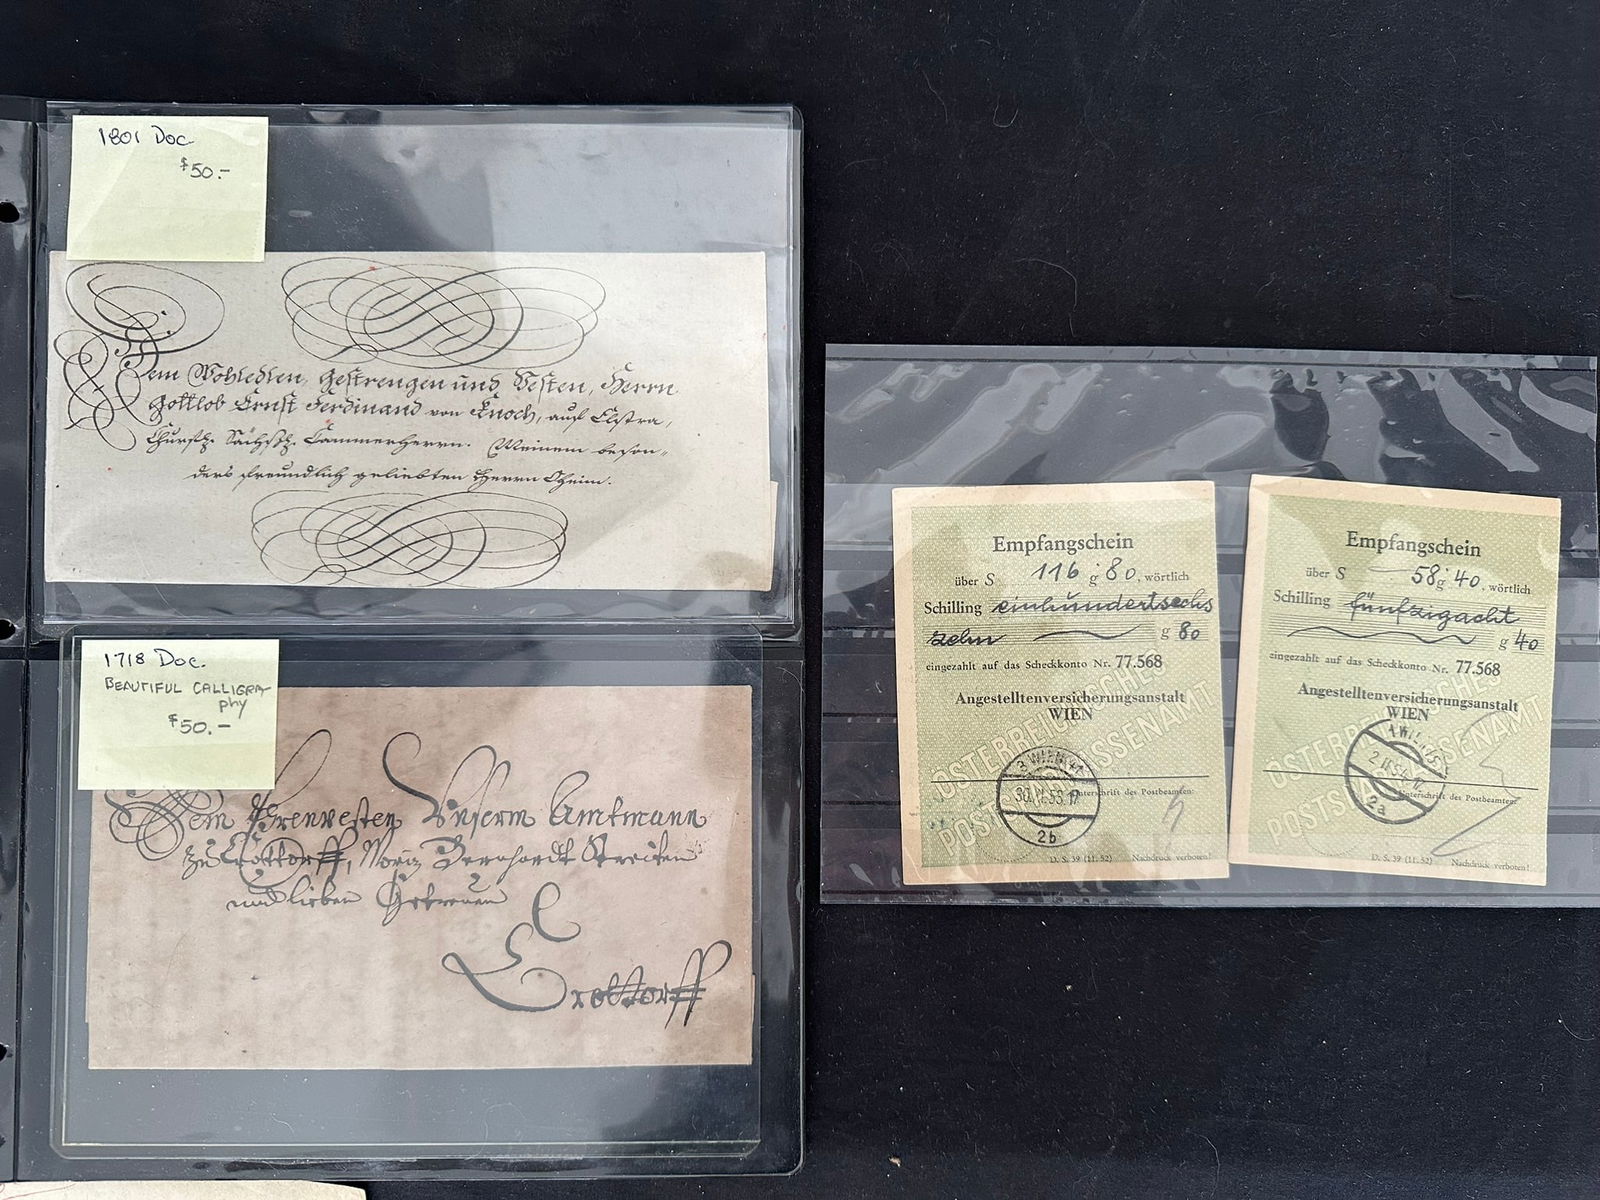 1801 Doc.
$50.-
Dem Wohledlen, Gestrengen und Vesten, Herrn
Gottlob Ernst Ferdinand von Knoch, auf Elstra,
Churfh. Sächsh. Cammerherrn. Meinem beson-
ders freundlich geliebten Herrn Oheim.
1718 Doc.
BEAUTIFUL CALLIGRA-
phy
$50.-
Dem Ehrenvesten Unserm Amtmann
zu Crottorff, Moriz Bernhardt Streiten
und lieben Getreuen
Crottorff
Empfangschein
über S 116 g 80, wörtlich
Schilling einhundertsechs
zehn g 80
eingezahlt auf das Scheckkonto Nr. 77.568
Angestelltenversicherungsanstalt
WIEN
ÖSTERREICHISCHES
POSTSPARKASSENAMT
Unterschrift des Postbeamten:
2b
D. S. 39 (11. 52) Nachdruck verboten!
Empfangschein
über S 58 g 40, wörtlich
Schilling fünfzigacht
g 40
eingezahlt auf das Scheckkonto Nr. 77.568
Angestelltenversicherungsanstalt
WIEN
ÖSTERREICHISCHES
POSTSPARKASSENAMT
Unterschrift des Postbeamten:
2a
D. S. 39 (11. 52) Nachdruck verboten!